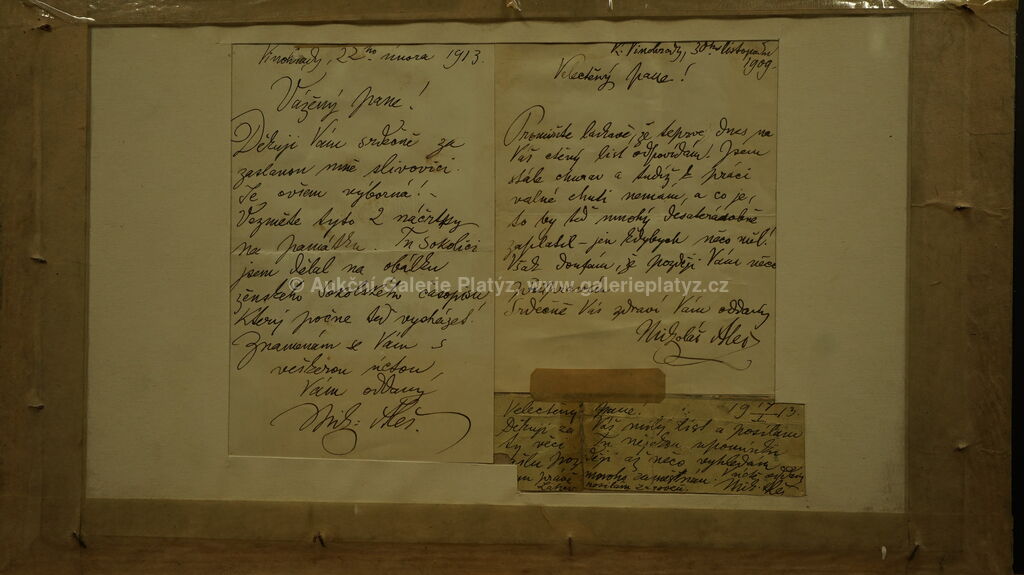 Vinohrady, 22ho února 1913.
Vážený pane!
Děkuji Vám srdečně za
zaslanou mně slivovici.
Je ovšem výborná! –
Vezměte tyto 2 náčrtky
na památku. Tu Sokolici
jsem dělal na obálku
ženského sokolského časopisu
který počne teď vycházet.
Znamenám se Vám s
veškerou úctou,
Vám oddaný
Mik. Aleš.
K. Vinohrady, 30ho listopadu
1909.
Velectěný pane!
Promiňte laskavě, že teprve dnes na
Váš ctěný list odpovídám! Jsem
stále churav a tudíž k práci
valné chuti nemám, a co je,
to by teď mnohý desateronásobně
zaplatil – jen kdybych něco měl!
Však doufám, že později Vám něco
Srdečně Vás zdraví Vám oddaný
Mikoláš Aleš
Velectěný pane. 19 13.
Děkuji za Váš milý list a posílám
ty věci. Tu nějakou upomínku
později až něco vyhledám
mnoho zaměstnán.
Mik. Aleš
© Aukční Galerie Platýz - www.galerieplatyz.cz